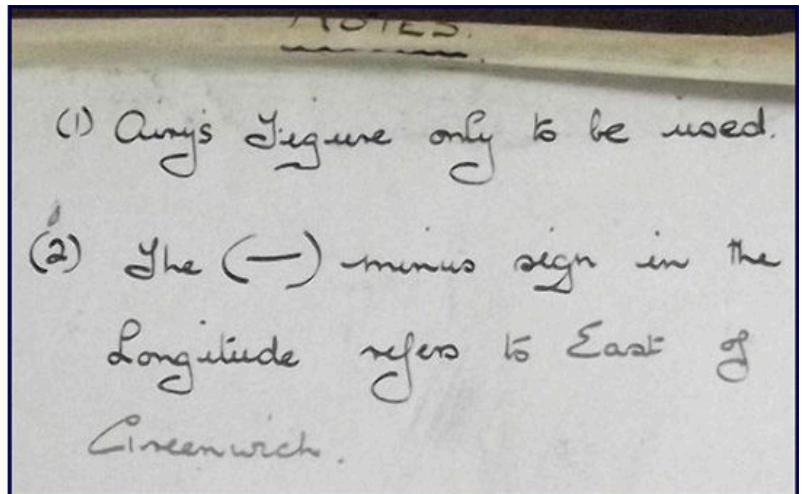 NOTES.
(1) Airy's Figure only to be used.
(2) The (—) minus sign in the
Longitude refers to East of
Greenwich.